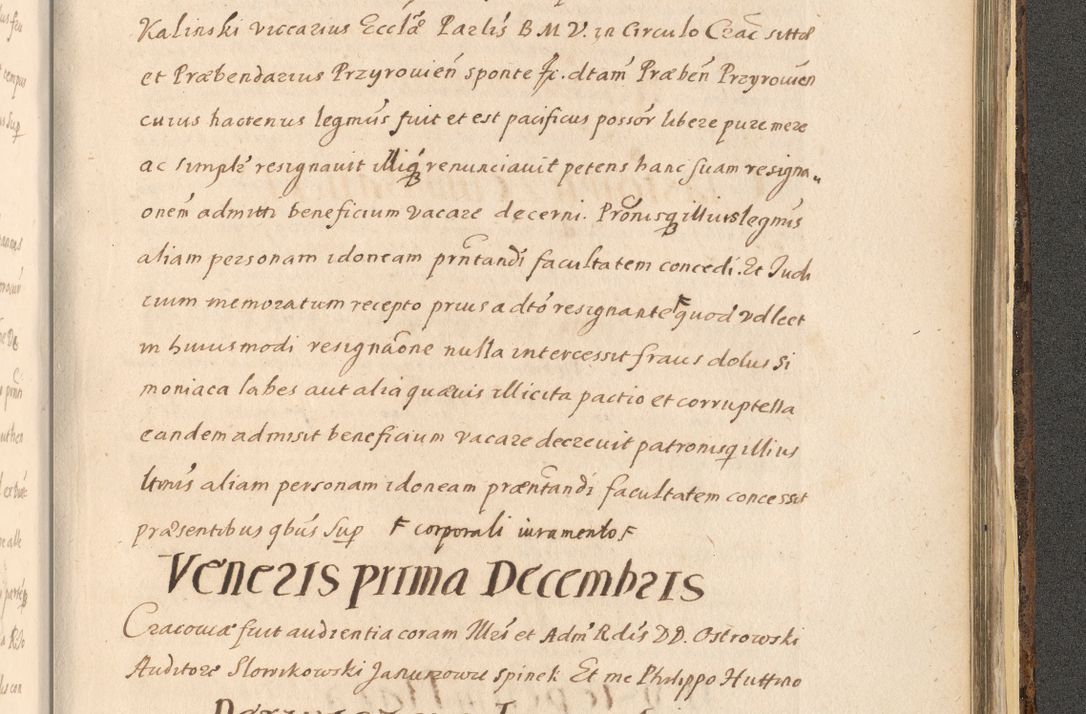 Kalinski viccarius Ecclæ Parlis B M V. in Circulo Crac sittæ
et Præbendarius Przyrowien sponte &c. dtam Præben Przyrowien
cuius hactenus legmus fuit et est pacificus possor libere pure mere
ac simplr resignavit illiq renunciavit petens hanc suam resigna„
onem admitti beneficium vacare decerni. Pronisq illius legmis
aliam personam idoneam prntandi facultatem concedi. Et Judi
cium memoratum recepto prius a dto resignante F quod vdlcet
in huiusmodi resignaone nulla intercessit fraus dolus Si
moniaca labes aut alia quævis illicita pactio et corruptella
eandem admisit beneficium vacare decrevit patronisq illius
ltmis aliam personam idoneam præntandi facultatem concessit
præsentibus qbus Sup F corporali iuramento F
Veneris prima Decembris
Cracoviæ fuit audientia coram Illris et Adm Rdis DD. Ostrowski
Auditore Slowikowski Januszowic Spinek Et me Philippo Huttino